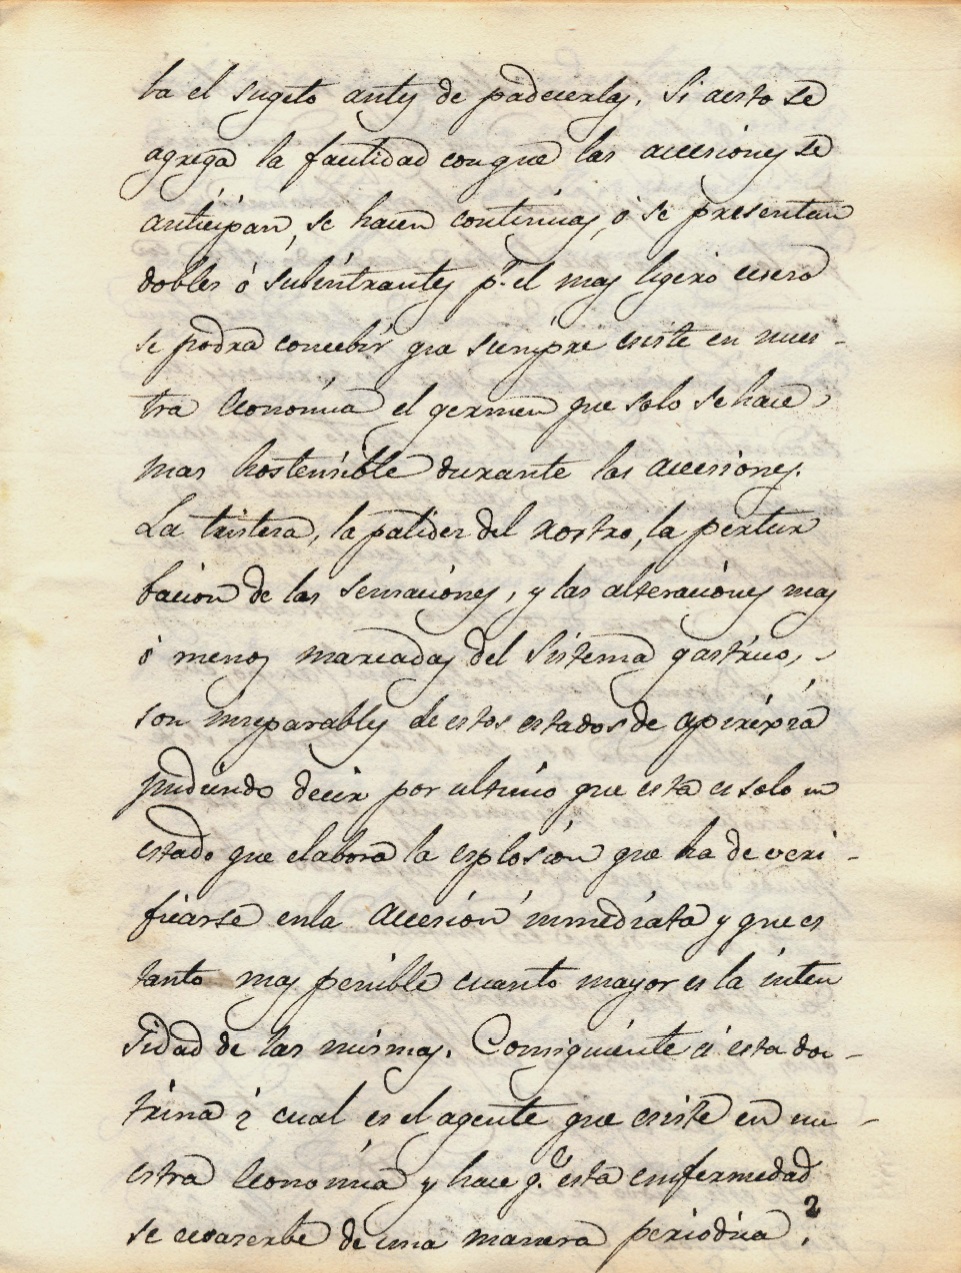 ba el sugeto antes de padecerlas. Si aesto se
agrega la facilidad conque las accesiones se
anticipan, se hacen continuas, ó se presentan
dobles ó subintrantes p.r el mas ligero
se podra concebir que siempre esiste en nues-
tra economia el germen que solo se hace
mas hostensible durante las accesiones.
La tristeza, la palidez del rostro, la pertur
bacion de las sensaciones, y las alteraciones mas
ó menos marcadas del sistema gastrico,
son inseparables de estos estados de apirexia
pudiendo decir por ultimo que esta es solo un
estado que elabora la esplosion que ha de veri-
ficarse enla accesion inmediata y que es
tanto mas penible cuanto mayor es la inten
sidad de las mismas. Consiguiente á esta doc-
trina ¿ cual es el agente que esiste en nu-
estra economia y hace q.e esta enfermedad
se ecsacerbe de una manera periodica?